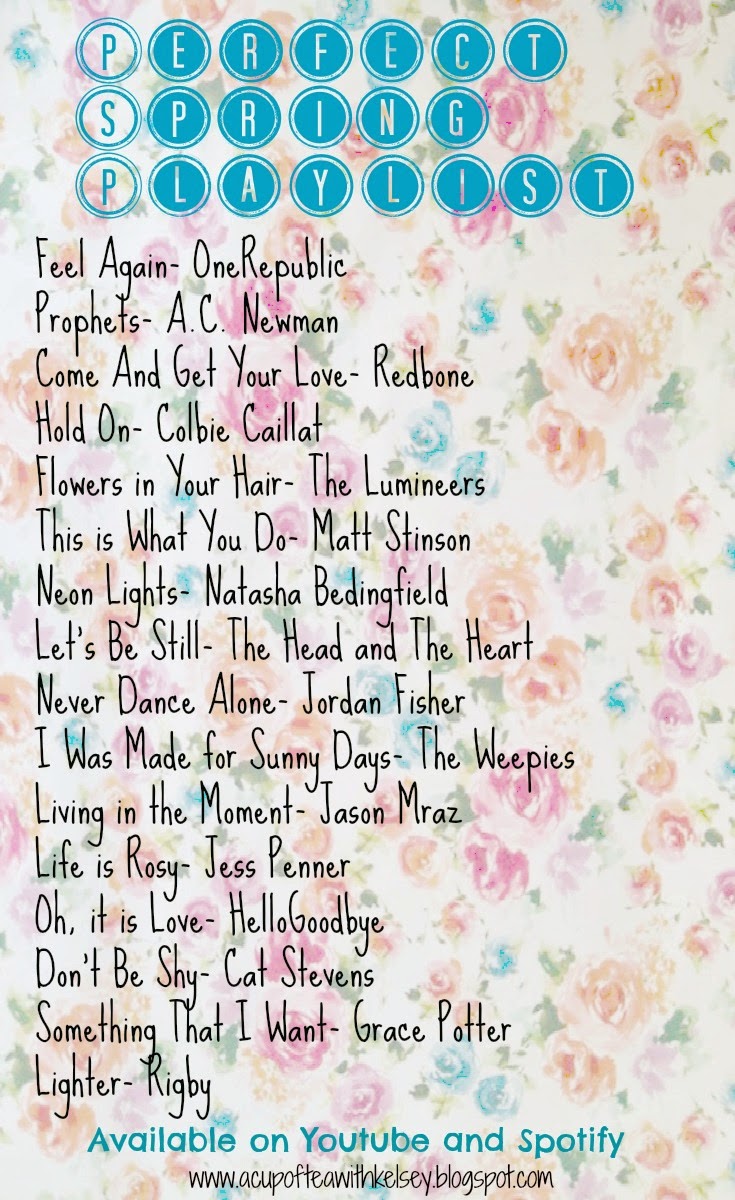 PERFECT
SPRING
PLAYLIST
Feel Again- OneRepublic
Prophets- A.C. Newman
Come And Get Your Love- Redbone
Hold On- Colbie Caillat
Flowers in Your Hair- The Lumineers
This is What You Do- Matt Stinson
Neon Lights- Natasha Bedingfield
Let's Be Still- The Head and The Heart
Never Dance Alone- Jordan Fisher
I Was Made for Sunny Days- The Weepies
Living in the Moment- Jason Mraz
Life is Rosy- Jess Penner
Oh, it is Love- HelloGoodbye
Don't Be Shy- Cat Stevens
Something That I Want- Grace Potter
Lighter- Rigby
Available on Youtube and Spotify
www.acupofteawithkelsey.blogspot.com